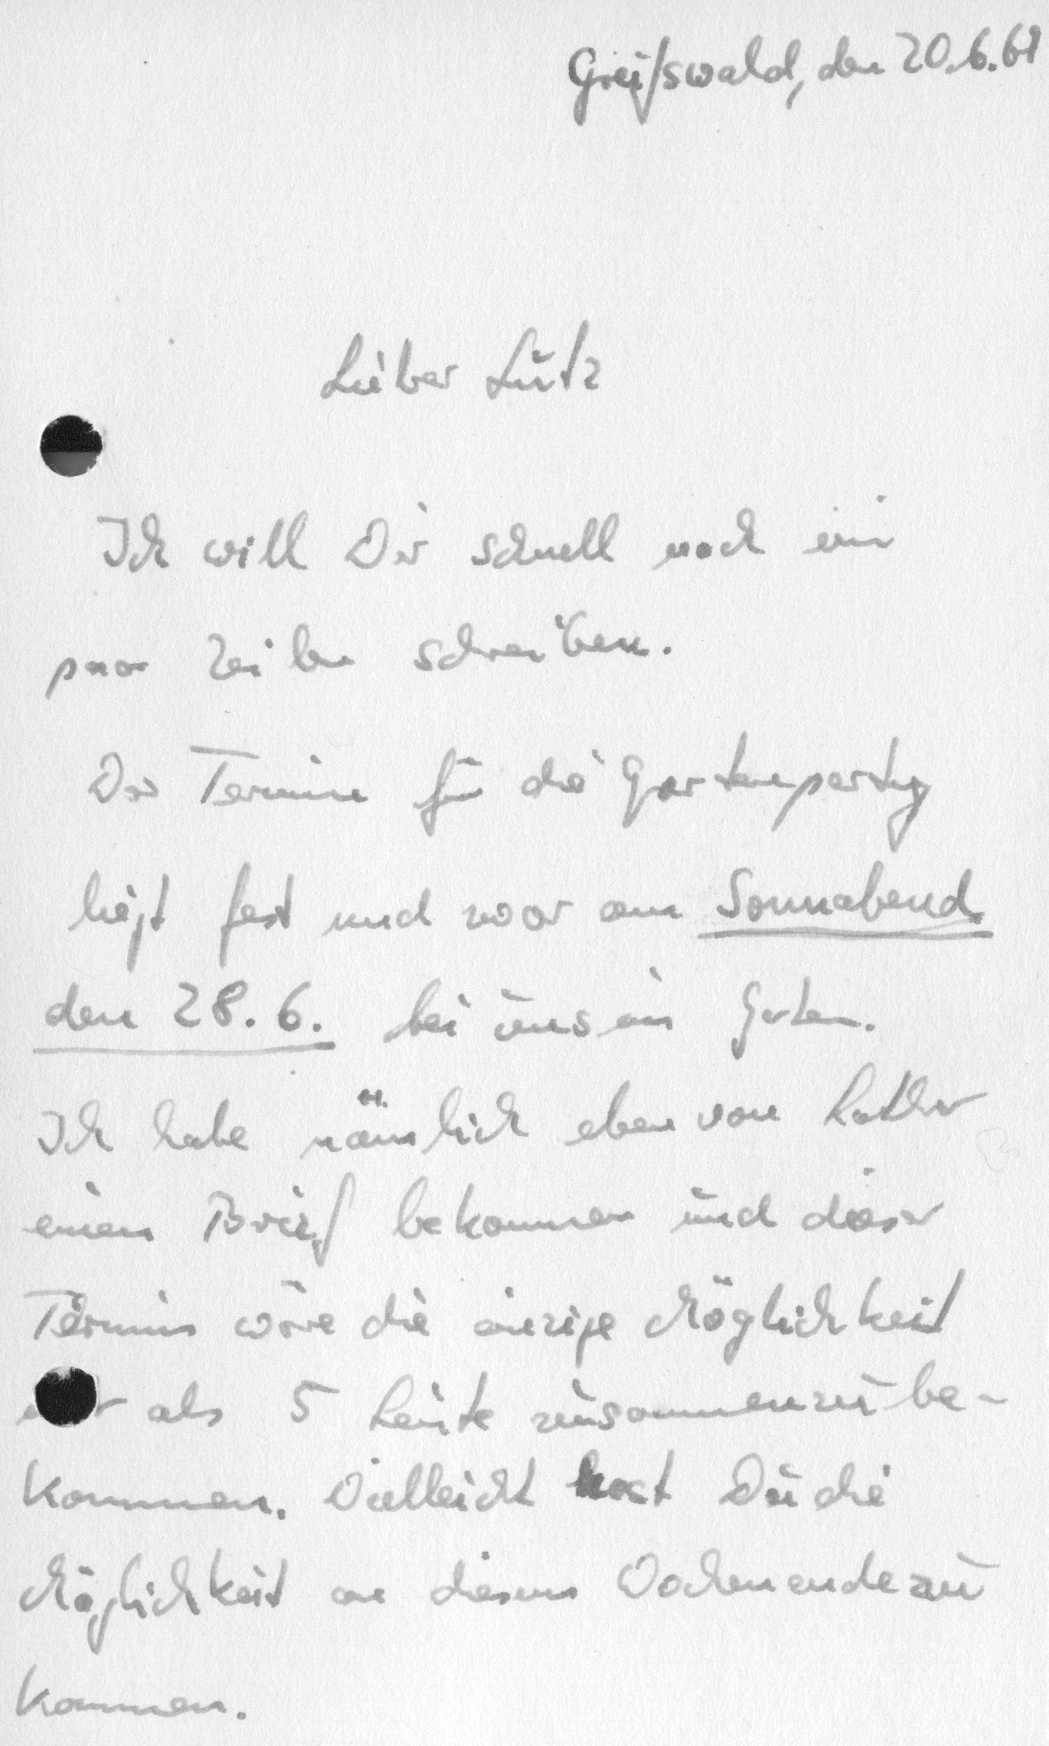 Greifswald, den 20.6.69
Lieber Lutz
Ich will Dir schnell noch ein
paar Zeilen schreiben.
Der Termin für die Gartenparty
liegt fest und zwar am Sonnabend
den 28.6. bei uns im Garten.
Ich habe nämlich eben von Lothar
einen Brief bekommen und dieser
Termin wäre die einzige Möglichkeit
als 5 Leute zusammenzube-
kommen. Vielleicht hast Du die
Möglichkeit an diesem Wochenende zu
kommen.